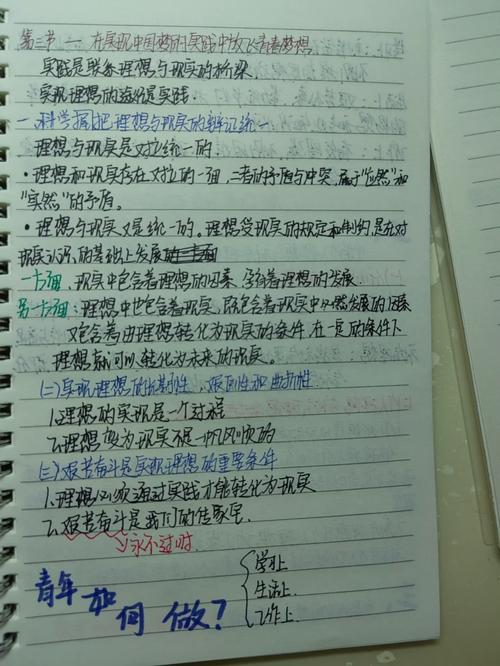 第三节 一 在实现中国梦的实践中放飞青春梦想
实践是联系理想与现实的桥梁
实现理想的途径是实践.
一、科学握把理想与现实的辩证统一
理想与现实是对立统一的.
·理想和现实存在对立的一面,二者的矛盾与冲突,属于"应然"和
"实然"的矛盾。
·理想与现实又是统一的。理想受现实的规定和制约,是在对
现实认识的基础上发展
一方面,现实中包含着理想的因素,孕育着理想的发展.
另一方面:理想中也包含着现实,既包含着现实中必然发展的因素
又包含着由理想转化为现实的条件,在一定的条件下
理想就可以转化为未来的现实。
(二)实现理想的长期性、艰巨性和曲折性.
1.理想的实现是一个过程
2.理想变为现实不是一帆风顺的
(三)艰苦奋斗是实现理想的重要条件
1.理想必须通过实践才能转化为现实
2.艰苦奋斗是我们的传家宝.
永不过时.
青年如何做?
学习上
生活上.
工作上.